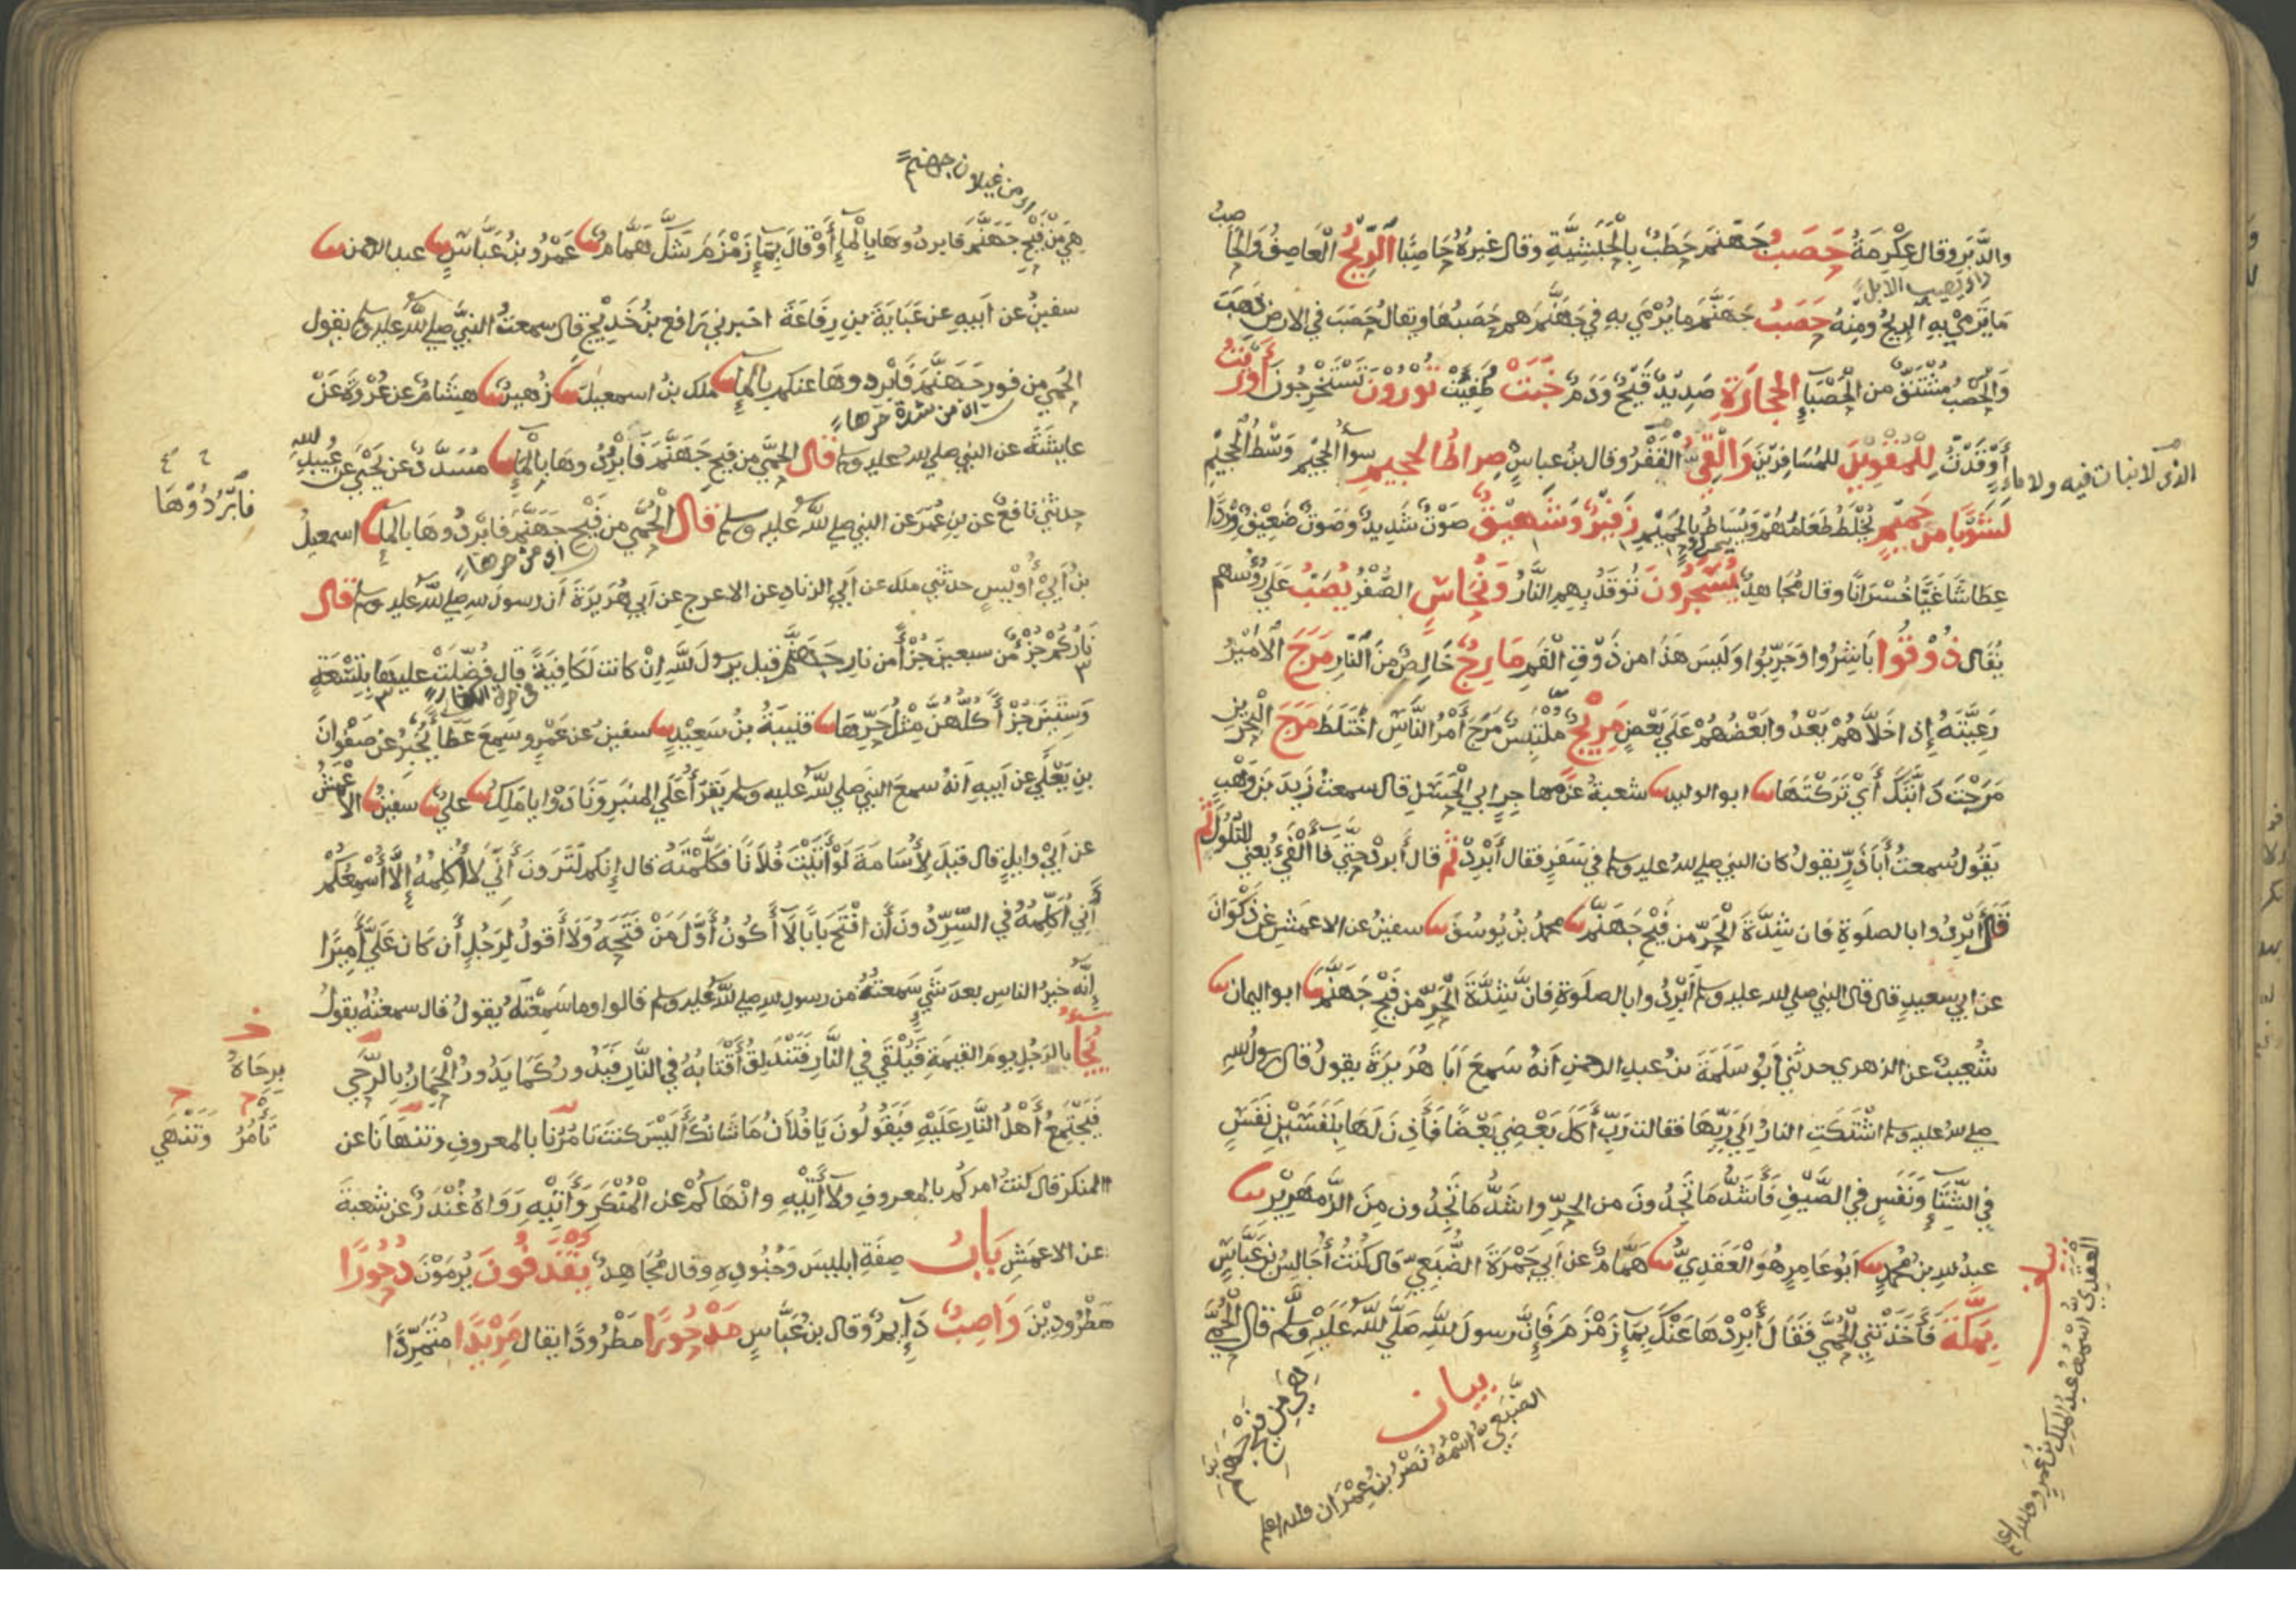 والدَّبَرِ وقال عِكْرِمَةُ حَصَبُ جَهَنَّمَ حَطَبُ بِالْحَبَشِيَّةِ وقال غيرُهُ حَاصِبًا الرِّيْحُ الْعَاصِفُ وَالْحَاصِبُ
مَا يَرْمِيْ بِهِ الرِّيْحُ ومِنْهُ حَصَبُ جَهَنَّمَ مَا يُرْمَي بِهِ فِي جَهَنَّمَ هم حَصَبُهَا ويقال حَصَبَ في الارض ذَهَبَ
وَالْحَصَبُ مُشْتَقٌّ من الْحَصْبَاءِ الْحِجَارَةِ صَدِيْدٌ قَيْحٌ وَدَمٌ خَبَتْ طُفِئَتْ تُوْرُوْنَ تَسْتَخْرِجُونَ أَوْرَيْتُ
أَوْقَدْتُ لِلْمُقْوِيْنَ لِلمُسَافِرِيْنَ وَالْقِيُّ الْقَفْرُ وقال بن عباسٍ صِراطُ الجحيم سواءُ الْجَحِيْمِ وَسْطُ الْجَحِيْمِ
الذى لا نبات فيه ولا ماء
لَشَوْبًا مِنْ حَمِيْمٍ يُخْلَطُ طَعَامُهُمْ وَيُسَاطُ بِالْحَمِيْمِ زَفِيْرٌ وَشَهِيْقٌ صَوْتٌ شَدِيدٌ وَصَوْتٌ ضَعِيْفٌ وِرْدًا
عِطَاشًا غَيًّا خُسْرَانًا وقال مُجَاهِدٌ يُسْجَرُونَ تُوقَدُ بِهِمِ النَّارُ وَنُحَاسٍ الصُّفْرُ يُصَبُّ عَلَى رُؤُسِهِم
يُقَالُ ذُوْقُوا بَاشِرُوا وَجَرِّبُوا وَلَيْسَ هَذَا من ذَوْقِ الْفَمِ مَارِجٌ خَالِصٌ مِنَ النَّارِ مَرَجَ الْأَمِيْرُ
رَعِيَّتَهُ إِذا خَلَّاهُمْ يَعْدُوا بَعْضُهُمْ عَلَى بَعْضٍ مَرِيْجٌ مُلْتَبِسٌ مَرَجَ أَمْرُ النَّاسِ اخْتَلَطَ مَرَجَ الْبَحْرَيْنِ
مَرَجْتَ دَابَّتَكَ أَيْ تَرَكْتَهَا ابو الوليد شعبةُ عَنْ مهاجِرٍ ابي الْحَسَنِ قال سمعتُ زَيْدَ بْنَ وَهْبٍ
يَقُولُ سمعتُ أَبَا ذَرٍّ يقولُ كان النبي صلى الله عليه وسلم في سَفَرٍ فقال أَبْرِدْ ثم قال أَبرِدْ حتّى فاءَ الْفَيْءُ يعني للتّلُولِ ثم
قال أَبْرِدُوا بالصلوةِ فان شِدَّةَ الْحَرِّ من فَيْحِ جَهَنَّمَ محمدُ بْنُ يُوسُفَ سفينُ عن الاعمَشِ عن ذَكْوَانَ
عن ابي سعيدٍ قال قال النبي صلى الله عليه وسلم أَبْرِدُوا بالصلَوةِ فانَّ شِدَّةَ الْحَرِّ من فَيْحِ جَهَنَّمَ ابو اليمان
شُعيبٌ عن الزهري حدثني أَبُو سَلَمَةَ بنُ عبدِ الرحمنِ أَنَّهُ سَمِعَ أَبَا هُرَيرَةَ يقولُ قال رسولُ اللهِ
صلى الله عليه وسلم اشْتَكَتِ النارُ إِلَى رَبِّهَا فقالت رَبِّ أَكَلَ بَعْضِي بَعْضًا فَأَذِنَ لَهَا بِنَفَسَيْنِ نَفَسٍ
فِي الشِّتَاءِ وَنَفَسٍ فِي الصَّيْفِ فَأَشَدُّ مَا تَجِدُونَ من الحرِّ واشَدُّ مَا تَجِدُون مِنَ الزَّمهَرِيْرِ
عبدُ الله بنُ مُحَمَّدٍ أَبُو عَامِرٍ هُوَ الْعَقَدِيُّ هَمَّامٌ عن أَبِي جَمْرَةَ الضُّبَعِيّ قال كُنْتُ أُجَالِسُ بْنَ عَبَّاسٍ
بِمَكَّةَ فَأَخَذَتْنِي الْحُمَّى فَقَالَ أَبْرِدْهَا عَنْكَ بِمَاءِ زَمْزَمَ فَإِنَّ رسولَ اللّٰهِ صَلَّى اللّٰه عَلَيْهِ وَسَلَّم قال الْحُمَّى
هِيَ مِن فَيْحِ جَهَنَّمَ
بيان
الضُّبَعِيّ اسْمُهُ نَصْرُ بْنُ عِمْرَان والله اعلم
بيان
العَقَدِيّ اسْمُهُ عَبْدُ الْمَلِكِ بْنُ عَمْرٍو والله اعلم
هِيَ مِنْ فَيْحِ جَهَنَّمَ فابردوها بِالْمَاءِ أَوْ قَالَ بِمَاءِ زَمْزَمَ شَكَّ هَمَّامٌ عَمْرُو بنُ عَبَّاسٍ عبد الرحمن
سفينُ عن أَبيهِ عن عَبَايَةَ بنِ رِفَاعَةَ اخبرني رافع بنُ خَدِيْجٍ قال سمعتُ النبيَّ صلى الله عليه وسلم يقول
الحُمى من فور جَهَنَّمَ فَابْرِدوهَا عنكم بِالْمَاءِ ملك بنُ اسمعيلَ زُهيرٌ هِشَامٌ عن عُرْوَةَ عَنْ
اى من شدة حرها
عايشَةَ عن النبي صلى الله عليه وسلم قال الحمَّى من فَيحِ جَهَنَّمَ فَابْرِدُوهَا بِالْمَاءِ مُسَدَّدٌ عن يَحْيَى عن عُبيدِ الله
فَابْرُدُوْهَا
حدثني نافعٌ عن بنِ عُمَرَ عن النبي صلى اللّٰه عليه وسلم قال الْحُمَّى من فَيْحِ جَهَنَّمَ فابْرِدُوهَا بالماءِ اسمعيلُ
اى من حرها
بنُ أَبِيْ أُوَيْسٍ حدثني ملك عن أَبِي الزناد عن الاعرج عن أَبِي هُرَيرَةَ أن رسولَ الله صلى الله عليه وسلم قال
نَارُكُمْ جُزْءٌ مِّن سبعينَ جُزْأً من نارِ جَهَنَّمَ قيل يرسولَ اللّٰهِ اِنْ كانت لَكَافِيَةً قال فُضِّلَتْ عليها بِتِسْعَةٍ
وَسِتِّينَ جُزْأً كُلُّهُنَّ مِثْلُ حَرِّهَا قتيبةُ بنُ سَعِيْدٍ سفينُ عن عَمْرٍو سَمِعَ عَطَاءً يُخْبِرُ عن صَفْوَانَ
بنِ يَعْلَى عن أَبيهِ أَنَّهُ سمعَ النبي صلى اللّٰه عليه وسلم يَقْرَأُ عَلَى المنبَرِ وَنَادَوْا يا مَلِكُ علي سفينُ الاعْمَشُ
عن أَبِيْ وايلٍ قال قيلَ لِأُسَامَةَ لَوْ أَتَيْتَ فُلَانًا فَكَلَّمْتَهُ قال إِنكم لَتَرَونَ أَنِّي لَا أُكلِّمُهُ إِلَّا أُسْمِعُكُمْ
أَنِي أُكَلِّمُهُ في السِّرِّ دُونَ أَن افْتَحَ بَابًا لَا أَكُونُ أَوَّلَ مَنْ فَتَحَهُ وَلَا أَقولُ لِرَجُلٍ أَن كَانَ عَلَيَّ أَمِيْرًا
إِنَّه خيرُ الناسِ بعدَ شَيْءٍ سَمِعتُهُ من رسولِ الله صلى الله عليه وسلم قالوا وما سَمِعْتَهُ يقولُ قال سمعتُهُ يقولُ
يُجَاءُ بالرَجُلِ يومَ القيمَةِ فَيُلْقَى فِي النَّارِ فَتَنْدَلِقُ أَقْتَابُهُ فِي النَّارِ فَيَدُورُ كَمَا يَدُورُ الْحِمَارُ بِالرَّحَى
بِرَحَاهُ
فَيَجْتَمِعُ أَهْلُ النَّارِ عَلَيْهِ فَيَقُولُونَ يَا فُلَانُ مَا شَانُكَ أَلَيْسَ كنتَ تَامُرُنا بالمعروفِ وتنهَانَا عن
تَأْمُرُ وَتَنْهَى
المنكر قال كنتُ امركُم بالمعروفِ ولَا أَتِيْهِ وانْهَاكُمْ عن الْمُنْكَرِ وَأَتِيْهِ رَوَاهُ غُنْدَرٌ عن شعبةَ
عن الاعمَشِ بَابُ صِفَةِ ابليسَ وَجُنُودِهِ وقال مُجَاهِدٌ يُقْذَفُونَ يُرمَوْنَ دُحُورًا
مَطْرُودِيْنَ وَاصِبٌ دَايِمٌ وقال بن عَبَّاسٍ مَدْحُورًا مَطْرُودًا يقال مَرِيْدًا مُتَمَرِّدًا